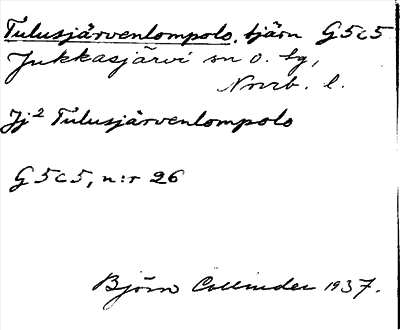 Tulusjärvenlompolo, tjärn G5c5
Jukkasjärvi sn o. tg,
Norrb. l.
Jj² Tulusjärvenlompolo
G5c5, n:r 26
Björn Collinder 1937.